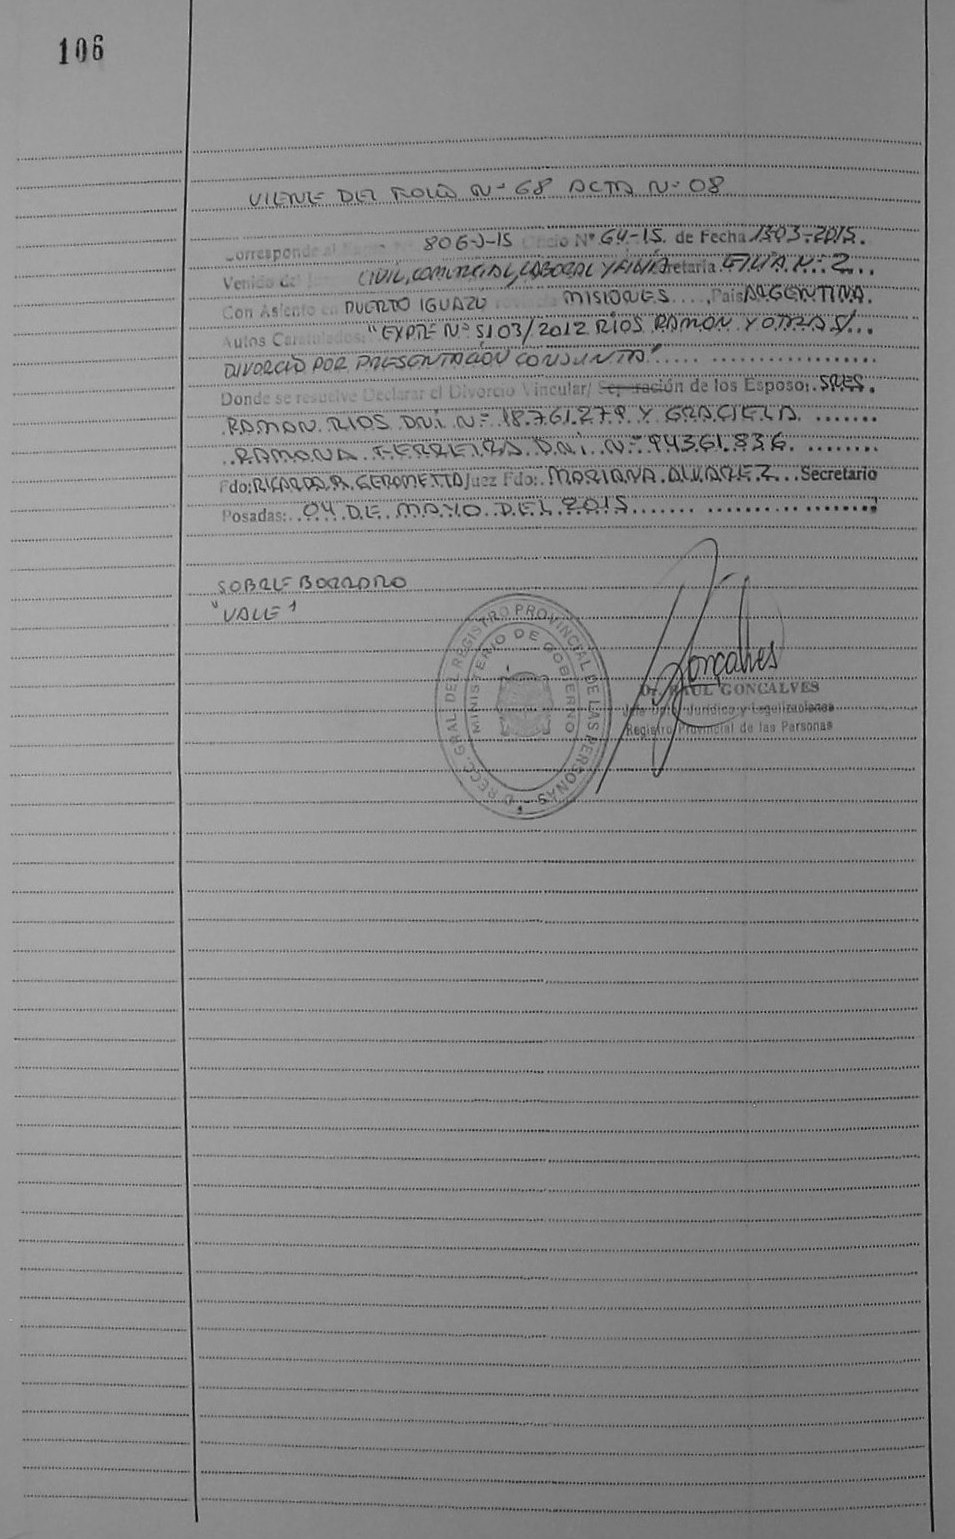 106
VIENE DEL FOLIO Nº 68 ACTA Nº 08
Corresponde al 806-J-15 Oficio Nº 64-15. de Fecha 1303-2015.
Venido del CIVIL, COMERCIAL, LABORAL Y FLIA Secretaria FLIA Nº 2
Con Asiento en PUERTO IGUAZÚ Provincia MISIONES, País ARGENTINA.
Autos Caratulados: "EXPTE Nº 5103/2012 RIOS RAMON Y OTRA S/
DIVORCIO POR PRESENTACION CONJUNTA"
Donde se resuelve Declarar el Divorcio Vincular/ Separación de los Esposo: SRES.
RAMON RIOS DNI Nº 18.761.279 Y GRACIELA
RAMONA FERREIRA DNI Nº 94361.836.
Fdo: RICARDO A. GEROMETTO Juez Fdo: MARIANA ALVAREZ Secretario
Posadas: 04 DE MAYO DEL 2015
SOBRE BORRADO
"VALE"
DIRECC. GRAL. DEL REGISTRO PROVINCIAL DE LAS PERSONAS
MINISTERIO DE GOBIERNO
Gonçalves
Dr. RAUL GONCALVES
Jefe Dpto. Jurídico y Legalizaciones
Registro Provincial de las Personas